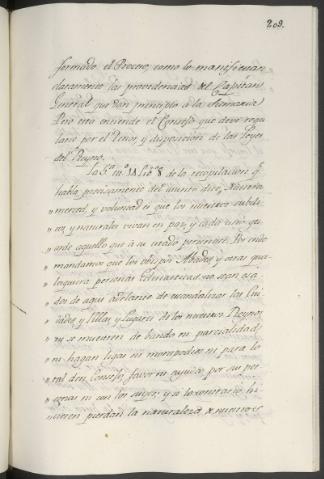 208.
formado el Proceso, como lo manifiestan
claramente las providencias del Capitan
General que dan principio a la Sumaria
Pero esta entiende el Consejo que deve regu
larse por el tenor, y disposicion de las Leyes
del Reyno.
La 5.ª de la recopilacion q.
habla precisamente del asunto dice, Nuestra
merced, y voluntad es que los nuestros subdi-
tos y naturales vivan en paz, y cada uno gu-
arde aquello que à su estado pertenece: Por ende
mandamos que los obispos Abades y otras qua-
lesquiera personas Eclesiasticas no sean osa
dos de aqui adelante de escandalizar las Ciu
dades y Villas y Lugares de los nuestros Reynos,
ny se muestren de bando en parcialidad,
ni hagan ligas ni monipodios ni para lo
tal den Consejo, favor ni ayuda por sus per
sonas ni con los suyos; y si lo contrario hi-
cieren pierdan la naturaleza